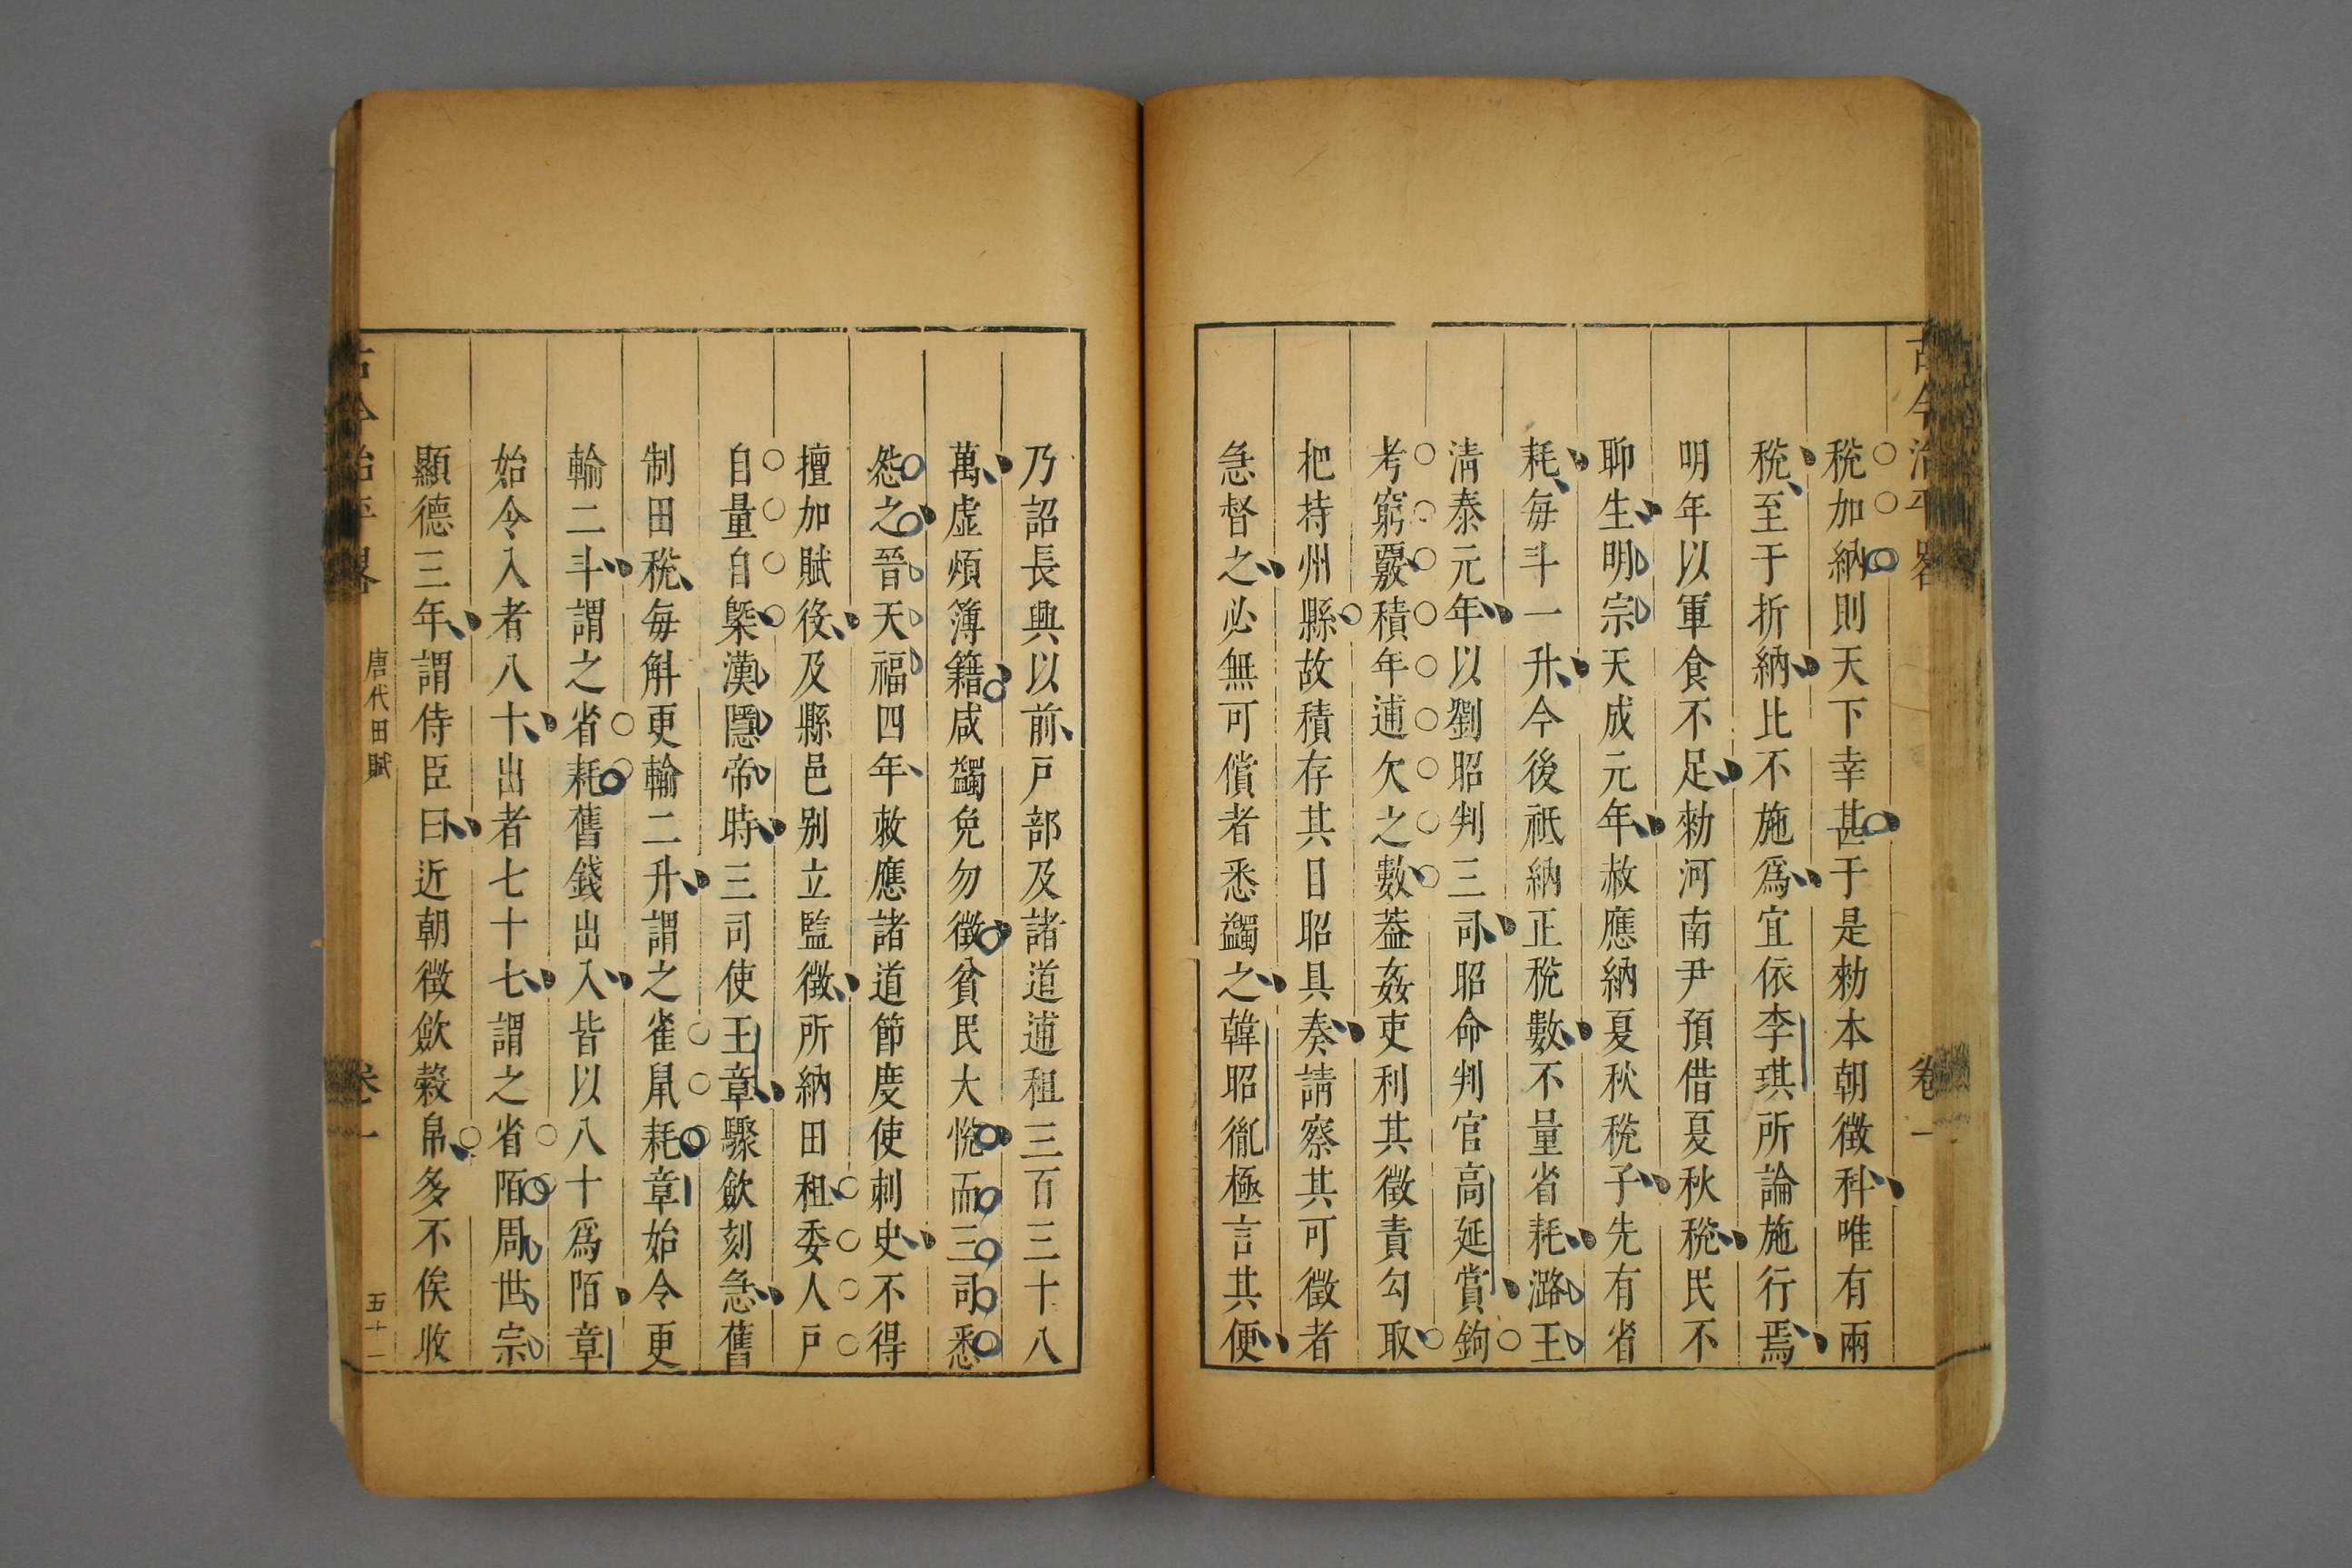 古今治平畧
卷一
稅加納則天下幸甚于是勑本朝徵科唯有兩
稅至于折納比不施爲宜依李琪所論施行焉
明年以軍食不足勑河南尹預借夏秋稅民不
聊生明宗天成元年赦應納夏秋稅子先有省
耗每斗一升今後祗納正稅數不量省耗潞王
清泰元年以劉昭判三司昭命判官高延賞鉤
考窮覈積年逋欠之數葢姦吏利其徵責勾取
把持州縣故積存其日昭具奏請察其可徵者
急督之必無可償者悉蠲之韓昭胤極言其便
乃詔長興以前戶部及諸道逋租三百三十八
萬虛煩簿籍咸蠲免勿徵貧民大悅而三司悉
怨之晉天福四年敕應諸道節度使刺史不得
擅加賦役及縣邑别立監徵所納田租委人戶
自量自槩漢隱帝時三司使王章驟歛刻急舊
制田稅每斛更輸二升謂之雀鼠耗章始令更
輸二斗謂之省耗舊錢出入皆以八十爲陌章
始令入者八十出者七十七謂之省陌周世宗
顯德三年謂侍臣曰近朝徵歛榖帛多不俟收
古今治平畧
唐代田賦
卷一
五十二